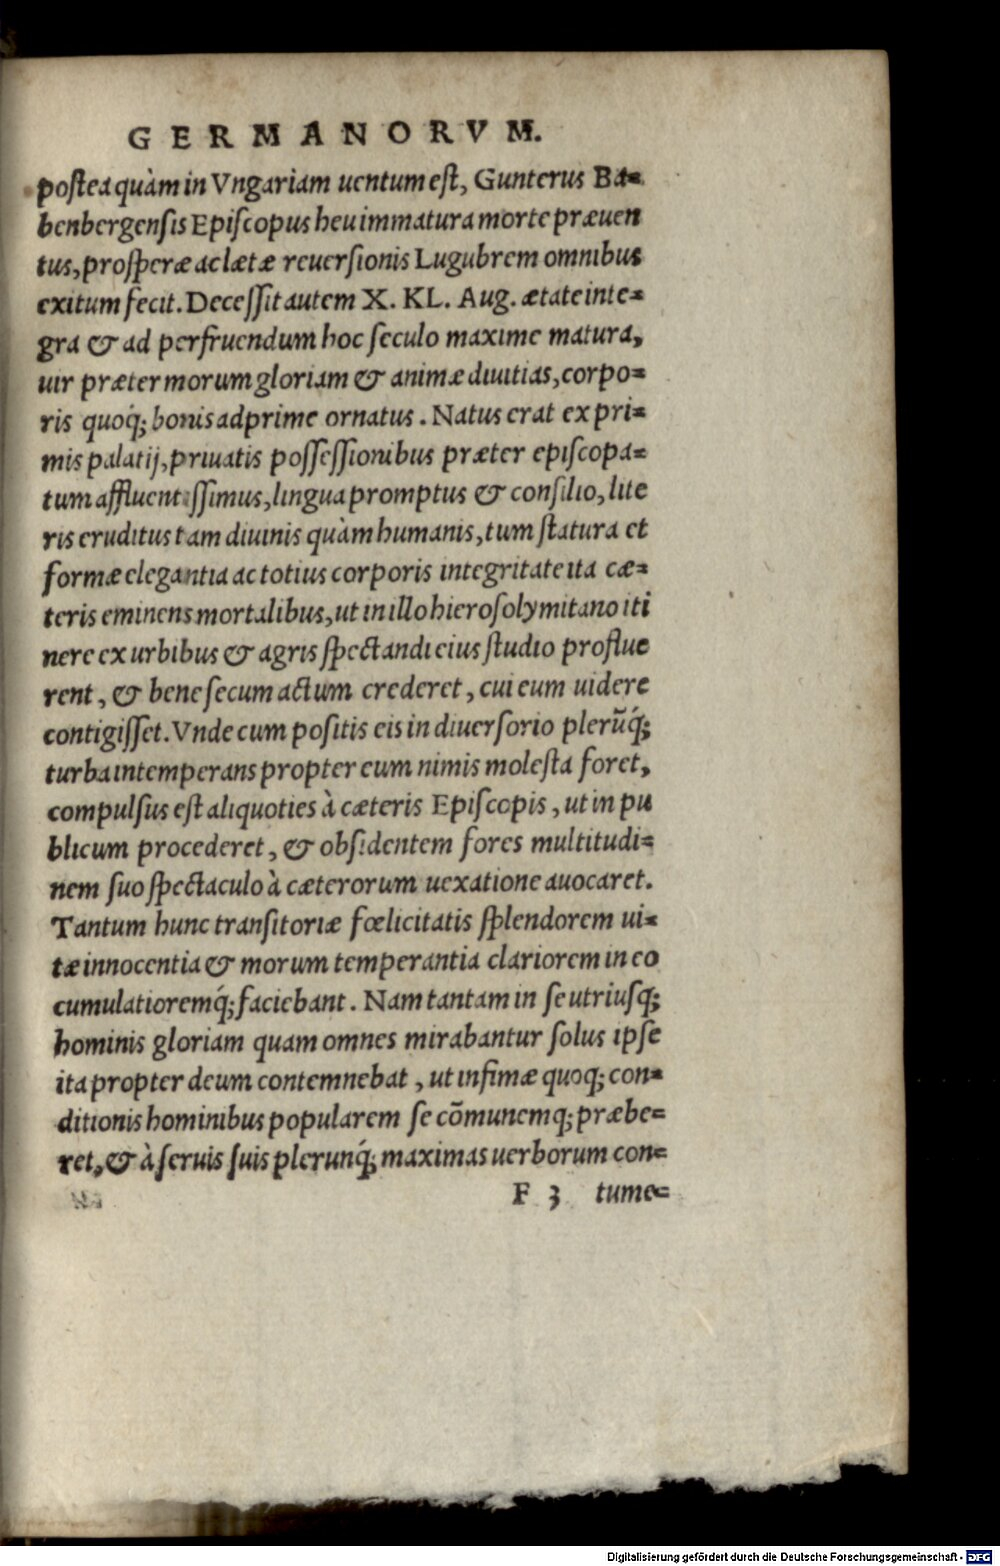 GERMANORVM.
postea quàm in Vngariam uentum est, Gunterus Ba=
benbergensis Episcopus heu immatura morte præuen
tus, prosperæ ac lætæ reuersionis Lugubrem omnibus
exitum fecit. Decessit autem X. KL. Aug. ætate inte=
gra & ad perfruendum hoc seculo maxime matura,
uir præter morum gloriam & animæ diuitias, corpo=
ris quoq́; bonis adprime ornatus. Natus erat ex pri=
mis palatij, priuatis possessionibus præter episcopa=
tum affluentissimus, lingua promptus & consilio, lite
ris eruditus tam diuinis quàm humanis, tum statura et
formæ elegantia ac totius corporis integritate ita cæ=
teris eminens mortalibus, ut in illo hierosolymitano iti
nere ex urbibus & agris spectandi eius studio proflue
rent, & bene secum actum crederet, cui eum uidere
contigisset. Vnde cum positis eis in diuersorio plerũq́;
turba intemperans propter eum nimis molesta foret,
compulsus est aliquoties à cæteris Episcopis, ut in pu
blicum procederet, & obsidentem fores multitudi=
nem suo spectaculo à cæterorum uexatione auocaret.
Tantum hunc transitoriæ fœlicitatis splendorem ui=
tæ innocentia & morum temperantia clariorem in eo
cumulatioremq́; faciebant. Nam tantam in se utriusq;
hominis gloriam quam omnes mirabantur solus ipse
ita propter deum contemnebat, ut infimæ quoq; con=
ditionis hominibus popularem se cõmunemq; præbe=
ret, & à seruis suis plerunq́; maximas uerborum con=
F 3 tume=
Digitalisierung gefördert durch die Deutsche Forschungsgemeinschaft - DFG